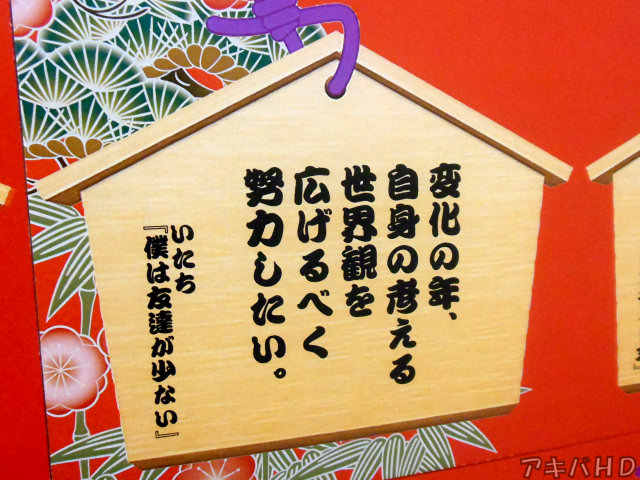 変化の年、
自身の考える
世界観を
広げるべく
努力したい。
いたち
『僕は友達が少ない』
アキバHD